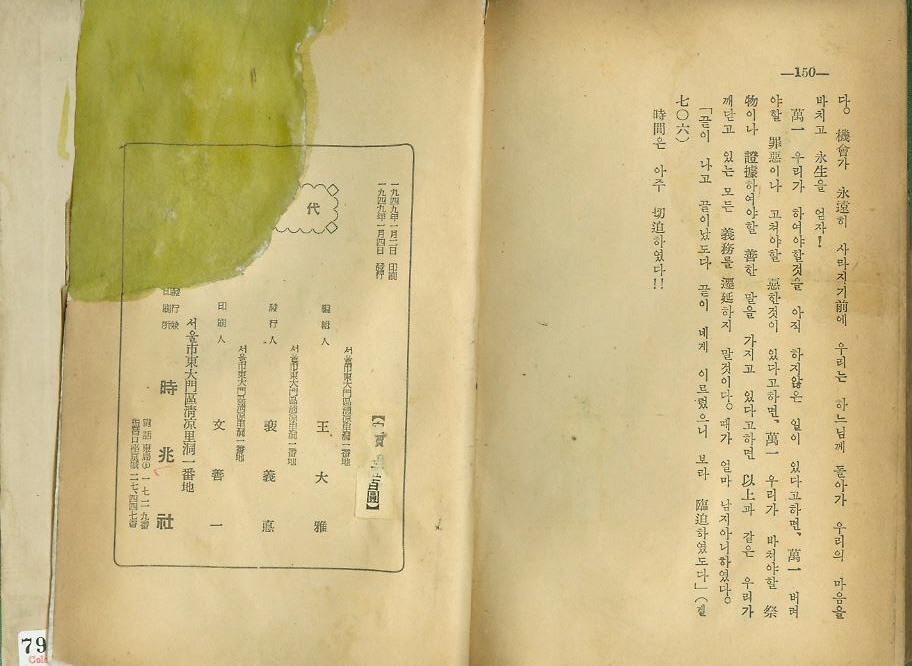 —150—
다。機會가 永遠히 사라지기前에 우리는 하느님께 돌아가 우리의 마음을
바치고 永生을 얻자!
萬一 우리가 하여야할것을 아직 하지않은 일이 있다고하면、萬一 버려
야할 罪惡이나 고쳐야할 惡한것이 있다고하면、萬一 우리가 바쳐야할 祭
物이나 證據하여야할 善한 말을 가지고 있다고하면 以上과 같은 우리가
깨닫고 있는 모든 義務를 遷延하지 말것이다。때가 얼마 남지아니하였다。
「끝이 나고 끝이났도다 끝이 네게 이르렀으니 보라 臨迫하였도다」(겔
七〇六)
時間은 아주 切迫하였다!!
一九四九年一月二日 印刷
一九四九年一月四日 發行
代
百圓】
서울市東大門區淸凉里洞一番地
編輯人 王大雅
서울市東大門區淸凉里洞一番地
發行人 裵義悳
서울市東大門區淸凉里洞一番地
印刷人 文善一
서울市東大門區淸凉里洞一番地
發行兼
印刷所 時兆社
電話東局(4)一七二九番
二七、四四七番
79